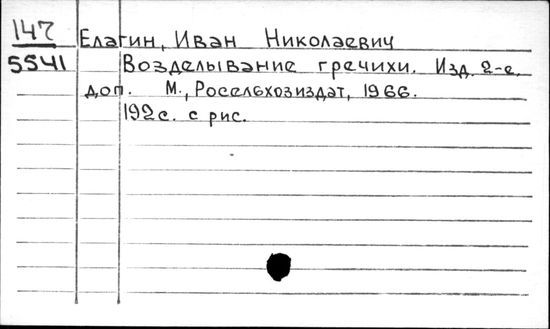 147 Елагин, Иван Николаевич
5541 Возделывание гречихи. Изд. 2-е,
доп. М., Россельхозиздат, 1966.
192с. с рис.